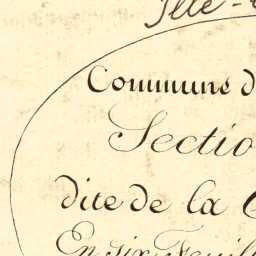 Ille-
Commune d
Sectio
dite de la C
En six Feuil